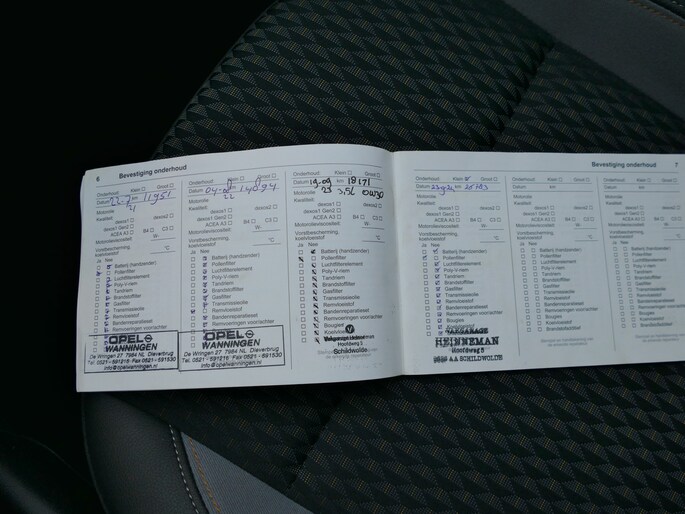 6 Bevestiging onderhoud
Onderhoud: Klein Groot
Datum km 11951
21
Motorolie
Kwaliteit:
dexos1 dexos2
dexos1 Gen2
ACEA A3 B4 C3
Motorolieviscositeit: W-
Vorstbescherming,
koelvloeistof °C
Ja Nee
Batterij (handzender)
Pollenfilter
Luchtfilterelement
Poly-V-riem
Tandriem
Brandstoffilter
Gasfilter
Transmissieolie
Remvloeistof
Bandenreparatieset
Remvoeringen voor/achter
OPEL
WANNINGEN
De Wringen 27 7984 NL Dieverbrug
Tel. 0521-591216 Fax 0521-591530
info@opelwanningen.nl
Onderhoud: Klein Groot
Datum km 14094
22
Motorolie
Kwaliteit:
dexos1 dexos2
dexos1 Gen2
ACEA A3 B4 C3
Motorolieviscositeit: W-
Vorstbescherming,
koelvloeistof °C
Ja Nee
Batterij (handzender)
Pollenfilter
Luchtfilterelement
Poly-V-riem
Tandriem
Brandstoffilter
Gasfilter
Transmissieolie
Remvloeistof
Bandenreparatieset
Remvoeringen voor/achter
OPEL
WANNINGEN
De Wringen 27 7984 NL Dieverbrug
Tel. 0521-591216 Fax 0521-591530
info@opelwanningen.nl
Onderhoud: Klein Groot
Datum 19-09 km 18171
Motorolie 23 3,5L 0W30
Kwaliteit:
dexos1 dexos2
dexos1 Gen2
ACEA A3 B4 C3
Motorolieviscositeit: W-
Vorstbescherming,
koelvloeistof °C
Ja Nee
Batterij (handzender)
Pollenfilter
Luchtfilterelement
Poly-V-riem
Tandriem
Brandstoffilter
Gasfilter
Transmissieolie
Remvloeistof
Bandenreparatieset
Remvoeringen voor/achter
Bougies
Hoofdweg 3
Schildwolde
Bevestiging onderhoud 7
Onderhoud: Klein Groot
Datum km
Motorolie
Kwaliteit:
dexos1 dexos2
dexos1 Gen2
ACEA A3 B4 C3
Motorolieviscositeit: W-
Vorstbescherming,
koelvloeistof °C
Ja Nee
Batterij (handzender)
Pollenfilter
Luchtfilterelement
Poly-V-riem
Tandriem
Brandstoffilter
Gasfilter
Transmissieolie
Remvloeistof
Bandenreparatieset
Remvoeringen voor/achter
Bougies
VAKGARAGE
HEINNEMAN
Hoofdweg 3
AA SCHILDWOLDE
Onderhoud: Klein Groot
Datum km
Motorolie
Kwaliteit:
dexos1 dexos2
dexos1 Gen2
ACEA A3 B4 C3
Motorolieviscositeit: W-
Vorstbescherming,
koelvloeistof °C
Ja Nee
Batterij (handzender)
Pollenfilter
Luchtfilterelement
Poly-V-riem
Tandriem
Brandstoffilter
Gasfilter
Transmissieolie
Remvloeistof
Bandenreparatieset
Remvoeringen voor/achter
Bougies
Koelvloeistof
Onderhoud: Klein Groot
Datum km
Motorolie
Kwaliteit:
dexos1 dexos2
dexos1 Gen2
ACEA A3 B4 C3
Motorolieviscositeit: W-
Vorstbescherming,
koelvloeistof °C
Ja Nee
Batterij (handzender)
Pollenfilter
Luchtfilterelement
Poly-V-riem
Tandriem
Brandstoffilter
Gasfilter
Transmissieolie
Remvloeistof
Bandenreparatieset
Remvoeringen voor/achter
Bougies
Koelvloeistof